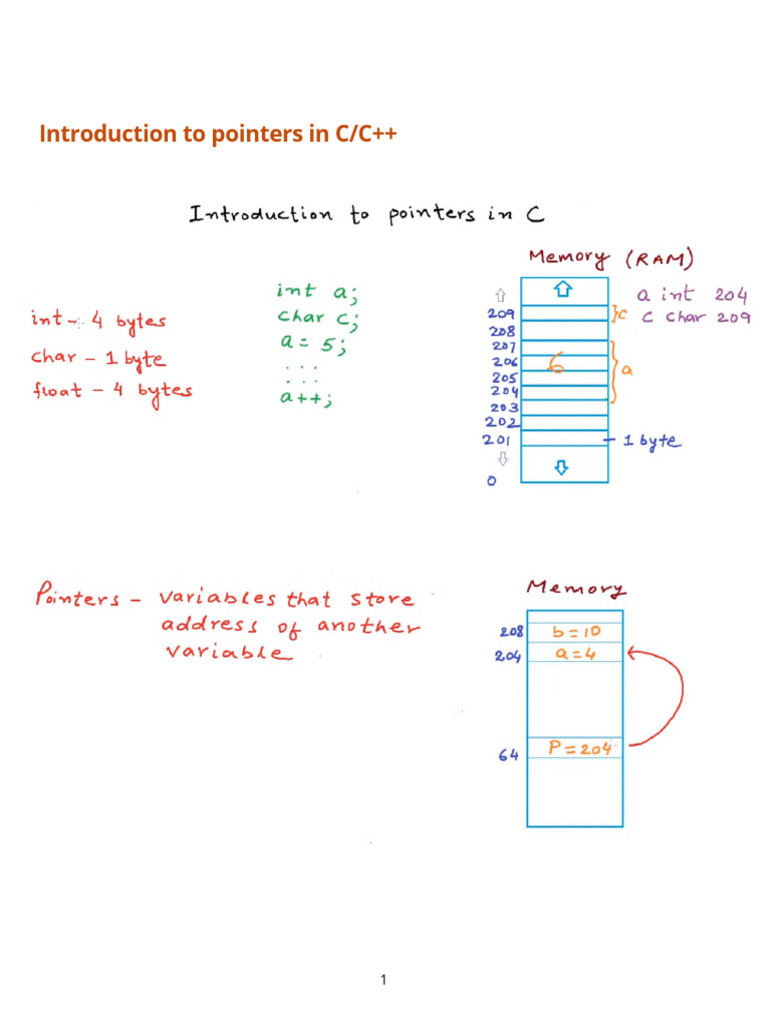 Introduction to pointers in C/C++
Introduction to pointers in C
Memory (RAM)
int - 4 bytes
char - 1 byte
float - 4 bytes
int a;
char c;
a = 5;
...
...
a++;
209
208
207
206
205
204
203
202
201
0
6
}c
}a
- 1 byte
a int 204
c char 209
Pointers - variables that store
address of another
variable
Memory
208 b=10
204 a=4
64 P=204
1